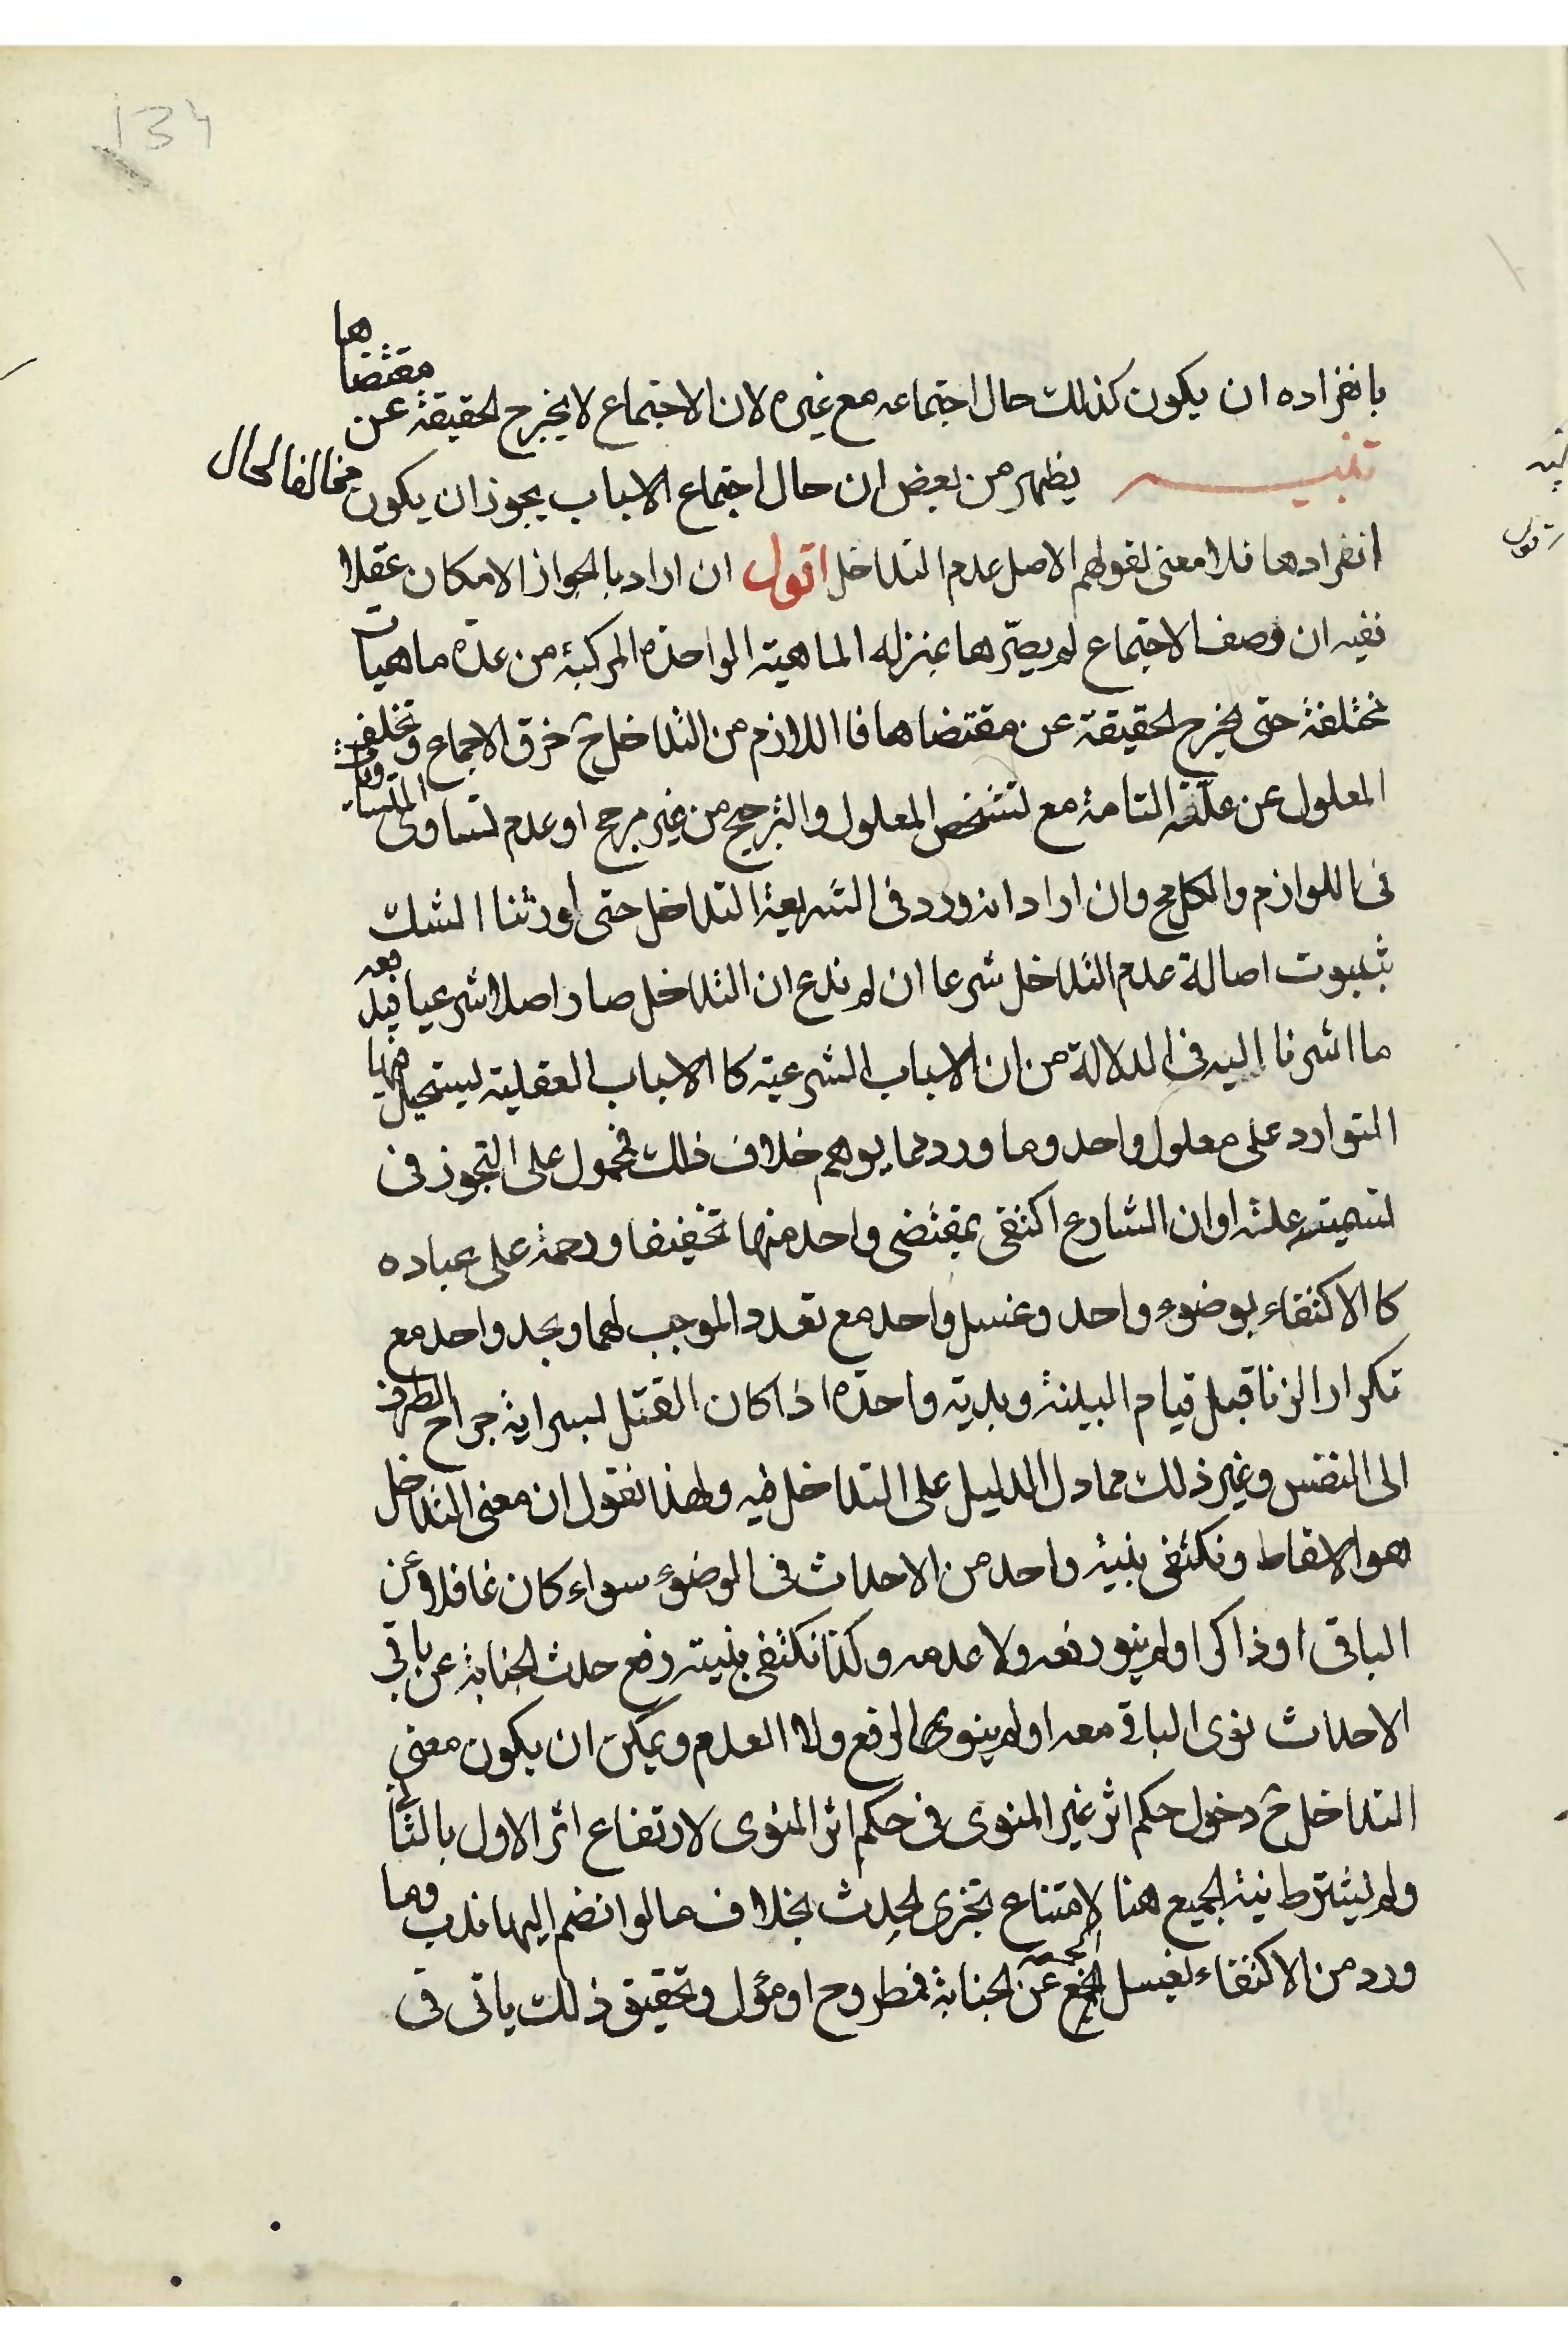 134
بانفراده ان يكون كذلك حال اجتماعه مع غيره لان الاجتماع لا يخرج الحقيقة عن مقتضاها
تنبيه يظهر من بعض ان حال اجتماع الاسباب يجوز ان يكون مخالفا لحال
انفرادها فلا معنى لقولهم الاصل عدم التداخل اقول ان اراد بالجواز الامكان عقلا
ففيه ان وصف الاجتماع لم يصيّرها بمنزله الماهية الواحده المركبة من عدة ماهيات
مختلفة حتى يخرج الحقيقة عن مقتضاها فاللازم من التداخل ح خرق الاجماع وتخلف
المعلول عن علته التامة مع تشخص المعلول والترجيح من غير مرجح او عدم تساوى المتساويات
فى اللوازم والكل مح وان اراد انه ورد فى الشريعة التداخل حتى أورثنا الشك
بثبوت اصالة عدم التداخل شرعا ان لم ندع ان التداخل صار اصلا شرعيا فيدفعه
ما اشرنا اليه فى الدلالة من ان الاسباب الشرعية كالاسباب العقلية يستحيل فيها
التوارد على معلول واحد وما ورد مما يوهم خلاف ذلك فمحمول على التجوز فى
تسميته علة او ان الشارع اكتفى بمقتضى واحد منها تخفيفا ورحمة على عباده
كالاكتفاء بوضوء واحد وغسل واحد مع تعدد الموجب لهما وبحد واحد مع
تكرار الزنا قبل قيام البينة وبدية واحدة اذا كان القتل بسراية جراح الطرف
الى النفس وغير ذلك مما دل الدليل على التداخل فيه ولهذا نقول ان معنى التداخل
هو الاسقاط ونكتفى بنية واحد من الاحداث فى الوضوء سواء كان غافلا عن
الباقى او ذاكرا ولم ينو رفعه ولا عدمه وكذا نكتفى بنية رفع حدث الجنابة عن باقى
الاحداث نوى الباقى معه او لم ينو بها الرفع ولا العدم ويمكن ان يكون معنى
التداخل ح دخول حكم اثر غير المنوى فى حكم اثر المنوى لارتفاع اثر الاول بالثانى
ولم يشترط نية الجميع هنا لامتناع تجزى الحدث بخلاف ما لو انضم اليها ندب وما
ورد من الاكتفاء بغسل الجمعة عن الجنابة فمطروح او مؤل وتحقيق ذلك ياتى فى